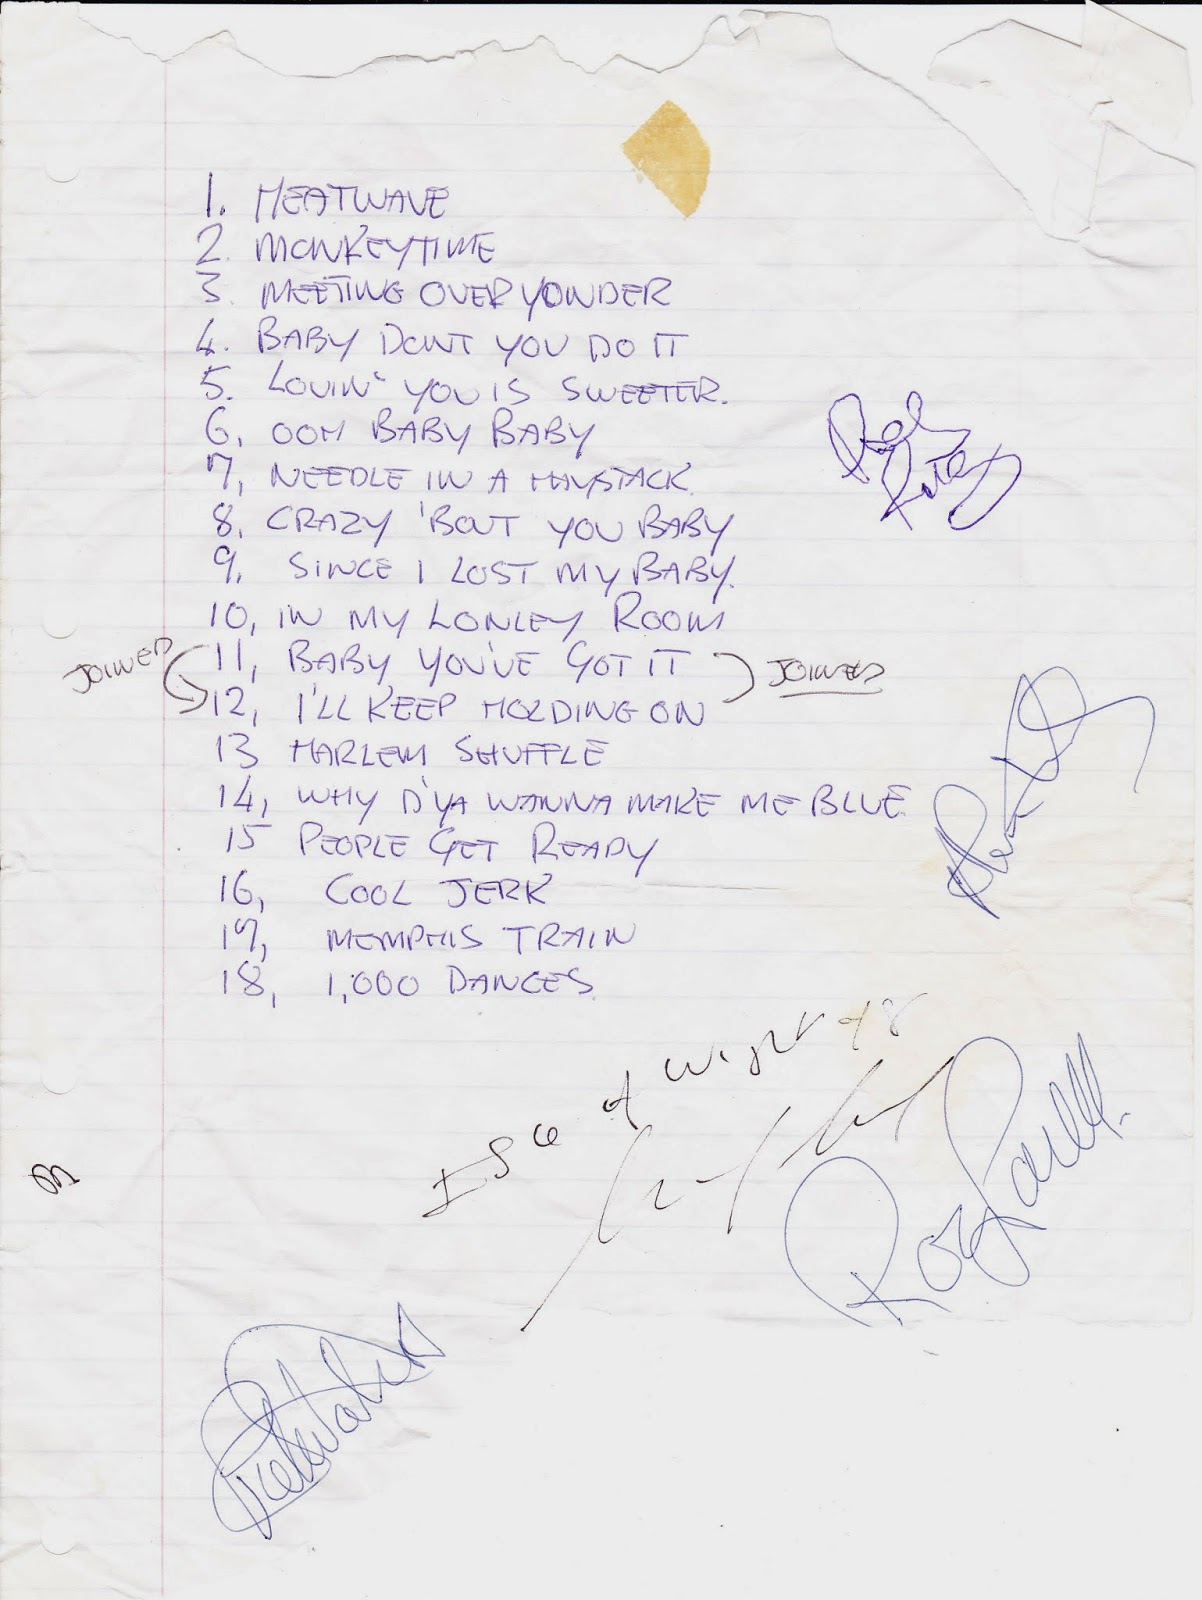 1. HEATWAVE
2. MONKEYTIME
3. MEETING OVER YONDER
4. BABY DONT YOU DO IT
5. LOVIN' YOU IS SWEETER.
6, OOH BABY BABY
7, NEEDLE IN A HAYSTACK.
8, CRAZY 'BOUT YOU BABY
9, SINCE I LOST MY BABY.
10, IN MY LONLEY ROOM
JOINED 11, BABY YOU'VE GOT IT JOINED
12, I'LL KEEP HOLDING ON
13 HARLEM SHUFFLE
14, WHY D'YA WANNA MAKE ME BLUE
15 PEOPLE GET READY
16, COOL JERK
17, MEMPHIS TRAIN
18, 1,000 DANCES.
ISle of Wight
Pete Watson